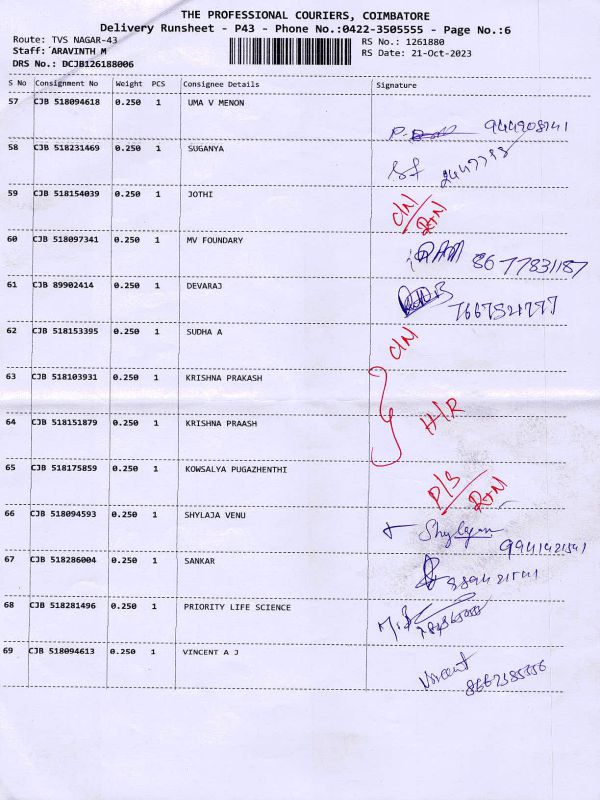 THE PROFESSIONAL COURIERS, COIMBATORE
Delivery Runsheet - P43 - Phone No.:0422-3505555 - Page No.:6
Route: TVS NAGAR-43 RS No.: 1261880
Staff: ARAVINTH M RS Date: 21-Oct-2023
DRS No.: DCJB126188006
S No Consignment No Weight PCS Consignee Details Signature
57 CJB 518094618 0.250 1 UMA V MENON
58 CJB 518231469 0.250 1 SUGANYA
59 CJB 518154039 0.250 1 JOTHI C/N/R+N
60 CJB 518097341 0.250 1 MV FOUNDARY RAM 8677831187
61 CJB 89902414 0.250 1 DEVARAJ
62 CJB 518153395 0.250 1 SUDHA A C/N
63 CJB 518103931 0.250 1 KRISHNA PRAKASH
64 CJB 518151879 0.250 1 KRISHNA PRAASH H/R
65 CJB 518175859 0.250 1 KOWSALYA PUGAZHENTHI P/B/R+N
66 CJB 518094593 0.250 1 SHYLAJA VENU 9941421541
67 CJB 518286004 0.250 1 SANKAR
68 CJB 518281496 0.250 1 PRIORITY LIFE SCIENCE
69 CJB 518094613 0.250 1 VINCENT A J Vincent